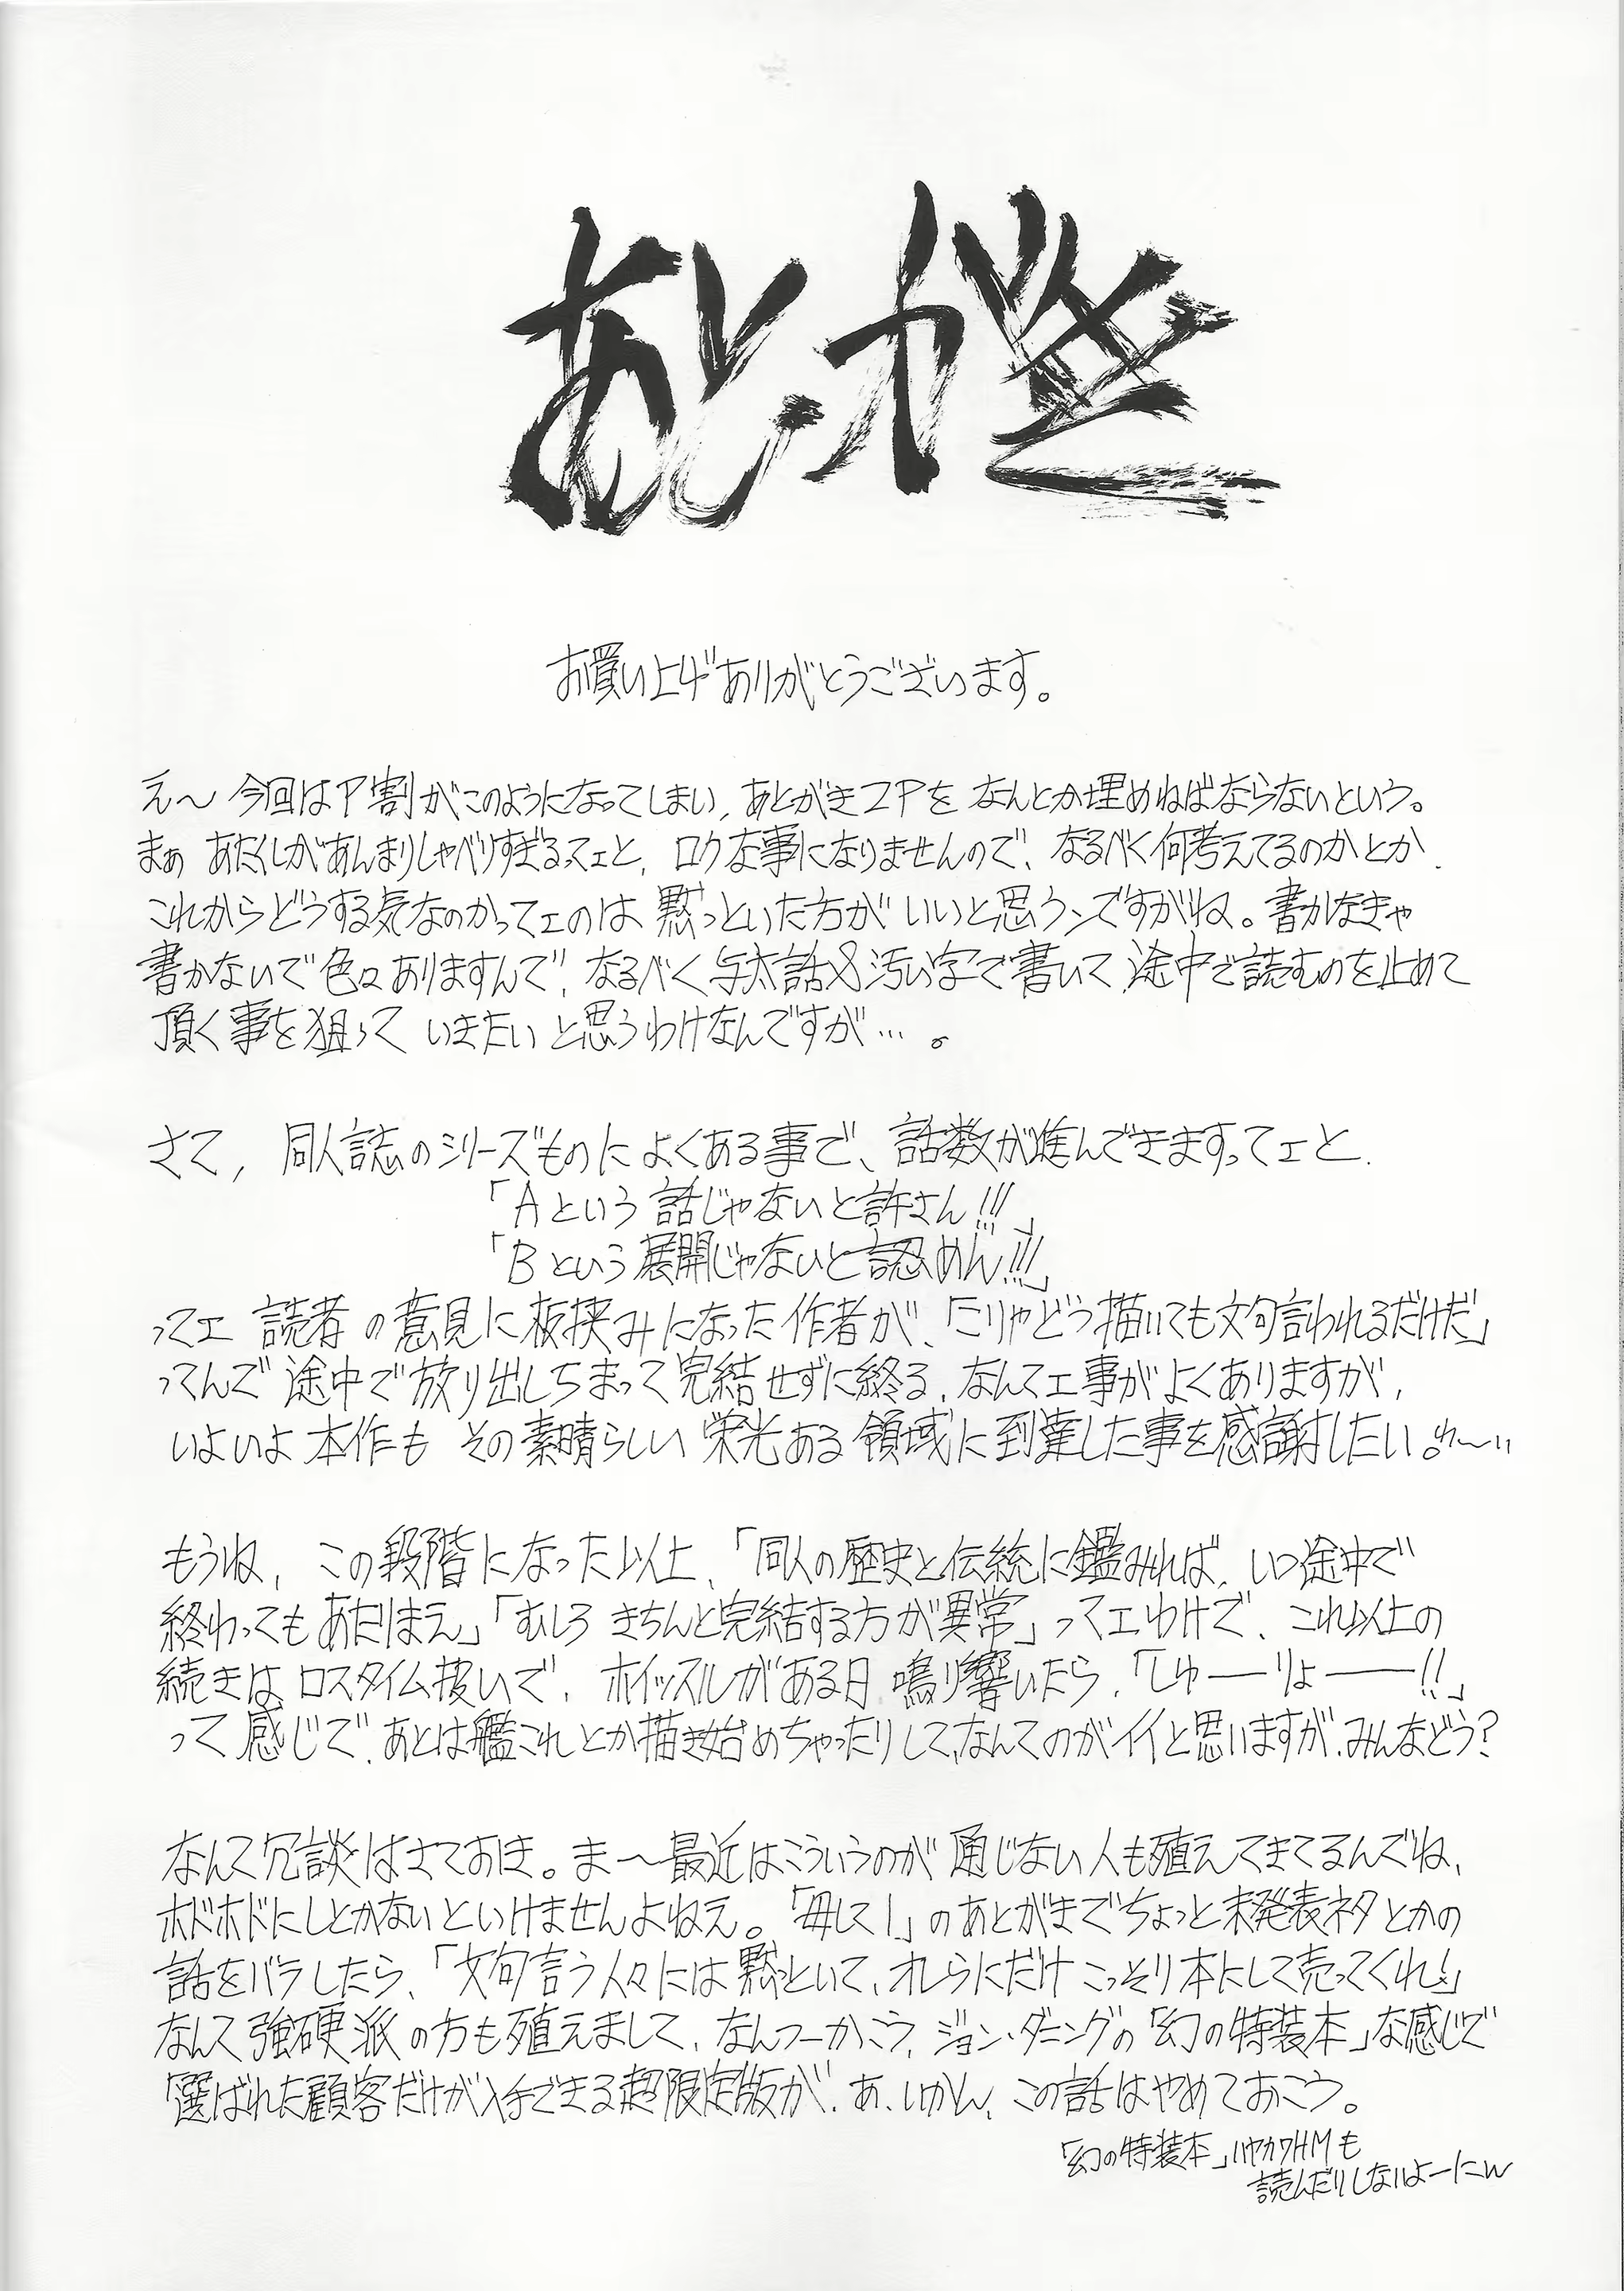 あとがき
お買い上げありがとうございます。
え〜今回はP割がこのようになってしまい、あとがき2Pをなんとか埋めねばならないという。
まぁ あたくしがあんまりしゃべりすぎるってェと、ロクな事になりませんので、なるべく何考えてるのかとか、
これからどうする気なのかってェのは黙っといた方がいいと思うンですがね。書かなきゃ
書かないで色々ありますんで、なるべく与太話&汚い字で書いて、途中で読むのを止めて
頂く事を狙っていきたいと思うわけなんですが…。
さて、同人誌のシリーズものによくある事で、話数が進んできますってェと、
「Aという話じゃないと許さん!!!」
「Bという展開じゃないと認めん!!!」
ってェ読者の意見に板挟みになった作者が、「こりゃどう描いても文句言われるだけだ」
ってんで途中で放り出しちまって完結せずに終る、なんてェ事がよくありますが、
いよいよ本作も その素晴らしい栄光ある領域に到達した事を感謝したい。
もうね、この段階になった以上、「同人の歴史と伝統に鑑みれば、いつ途中で
終わってもあたりまえ」「むしろ きちんと完結する方が異常」ってェわけで、これ以上の
続きは ロスタイム扱いで、ホイッスルがある日 鳴り響いたら、「しゅ――りょ――!!」
って感じで、あとは艦これとか描き始めちゃったりして、なんてのがイイと思いますが、みんなどう?
なんて冗談はさておき。ま〜最近はこういうのが通じない人も殖えてきてるんでね、
ホドホドにしとかないといけませんよねえ。「毋して1」のあとがきでちょっと未発表ネタとかの
話をバラしたら、「文句言う人々には黙っといて、オレらにだけ こっそり本にして売ってくれ!」
なんて強硬派の方も殖えまして、なんつーかこう、ジョン・ダニングの「幻の特装本」な感じで
「選ばれた顧客だけが入手できる超限定版が、あ、いかん、この話はやめておこう。
「幻の特装本」ハヤカワHMも
読んだりしないよーにw